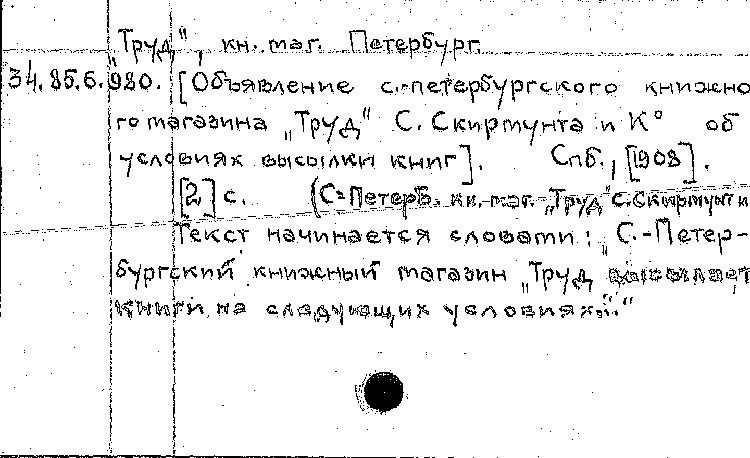 „Труд", кн. маг. Петербург.
34.85.6.980. [Объявление с.-петербургского книжно
го магазина „Труд" С. Скирмунта и К° об
условиях высылки книг]. Спб., [1908].
[2] с. (С-Петерб. кн. маг. „Труд" С. Скирмунт и
Текст начинается словами: „С.-Петер-
бургский книжный магазин „Труд высылает
книги на следующих условиях..."